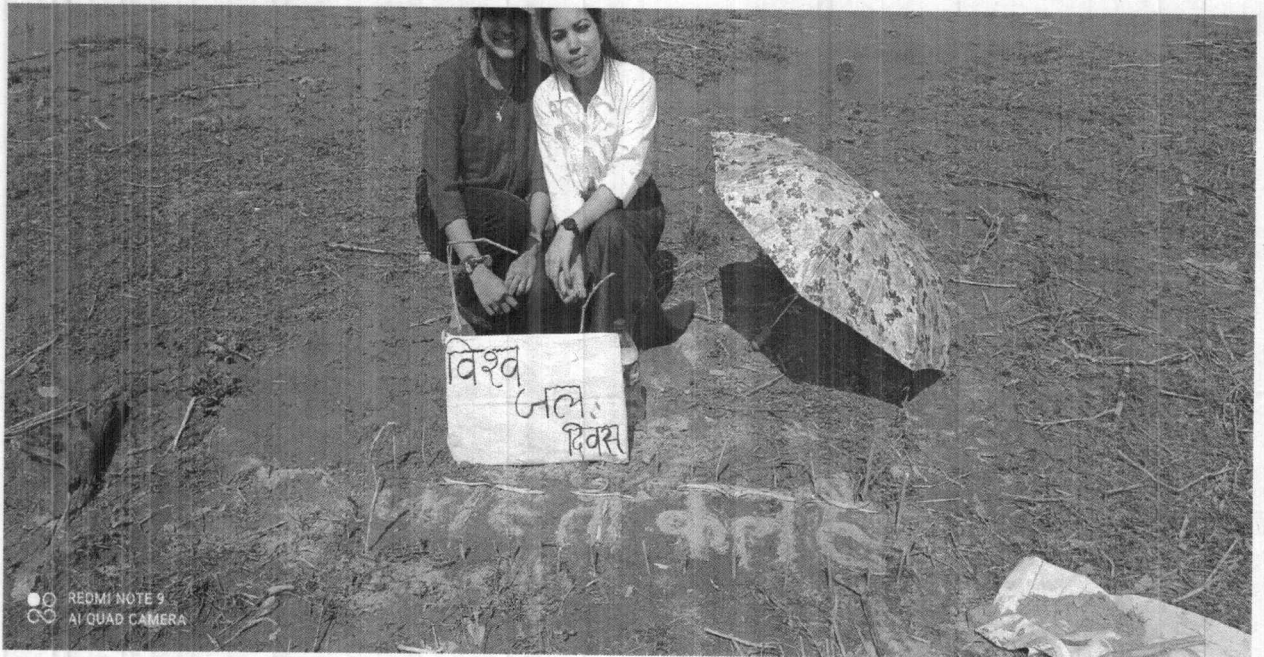 विश्व
जल
दिवस
REDMI NOTE 9
AI QUAD CAMERA